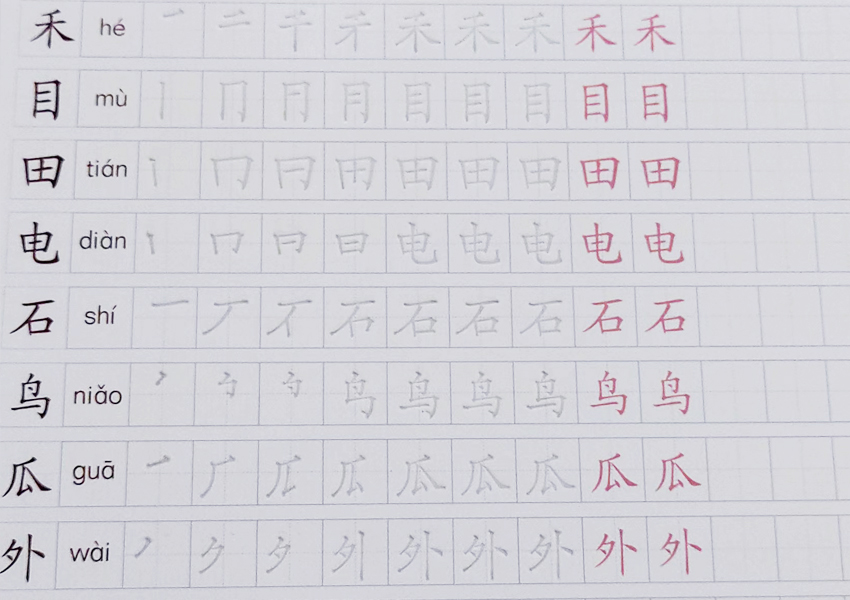 禾 hé 一 二 千 禾 禾 禾 禾 禾
目 mù 丨 冂 月 月 目 目 目 目 目
田 tián 丨 冂 田 田 田 田 田 田
电 diàn 丨 冂 日 电 电 电 电 电
石 shí 一 丆 石 石 石 石 石 石
鸟 niǎo 鸟 鸟 鸟 鸟 鸟 鸟
瓜 guā 一 厂 瓜 瓜 瓜 瓜 瓜
外 wài 丿 夕 外 外 外 外 外 外